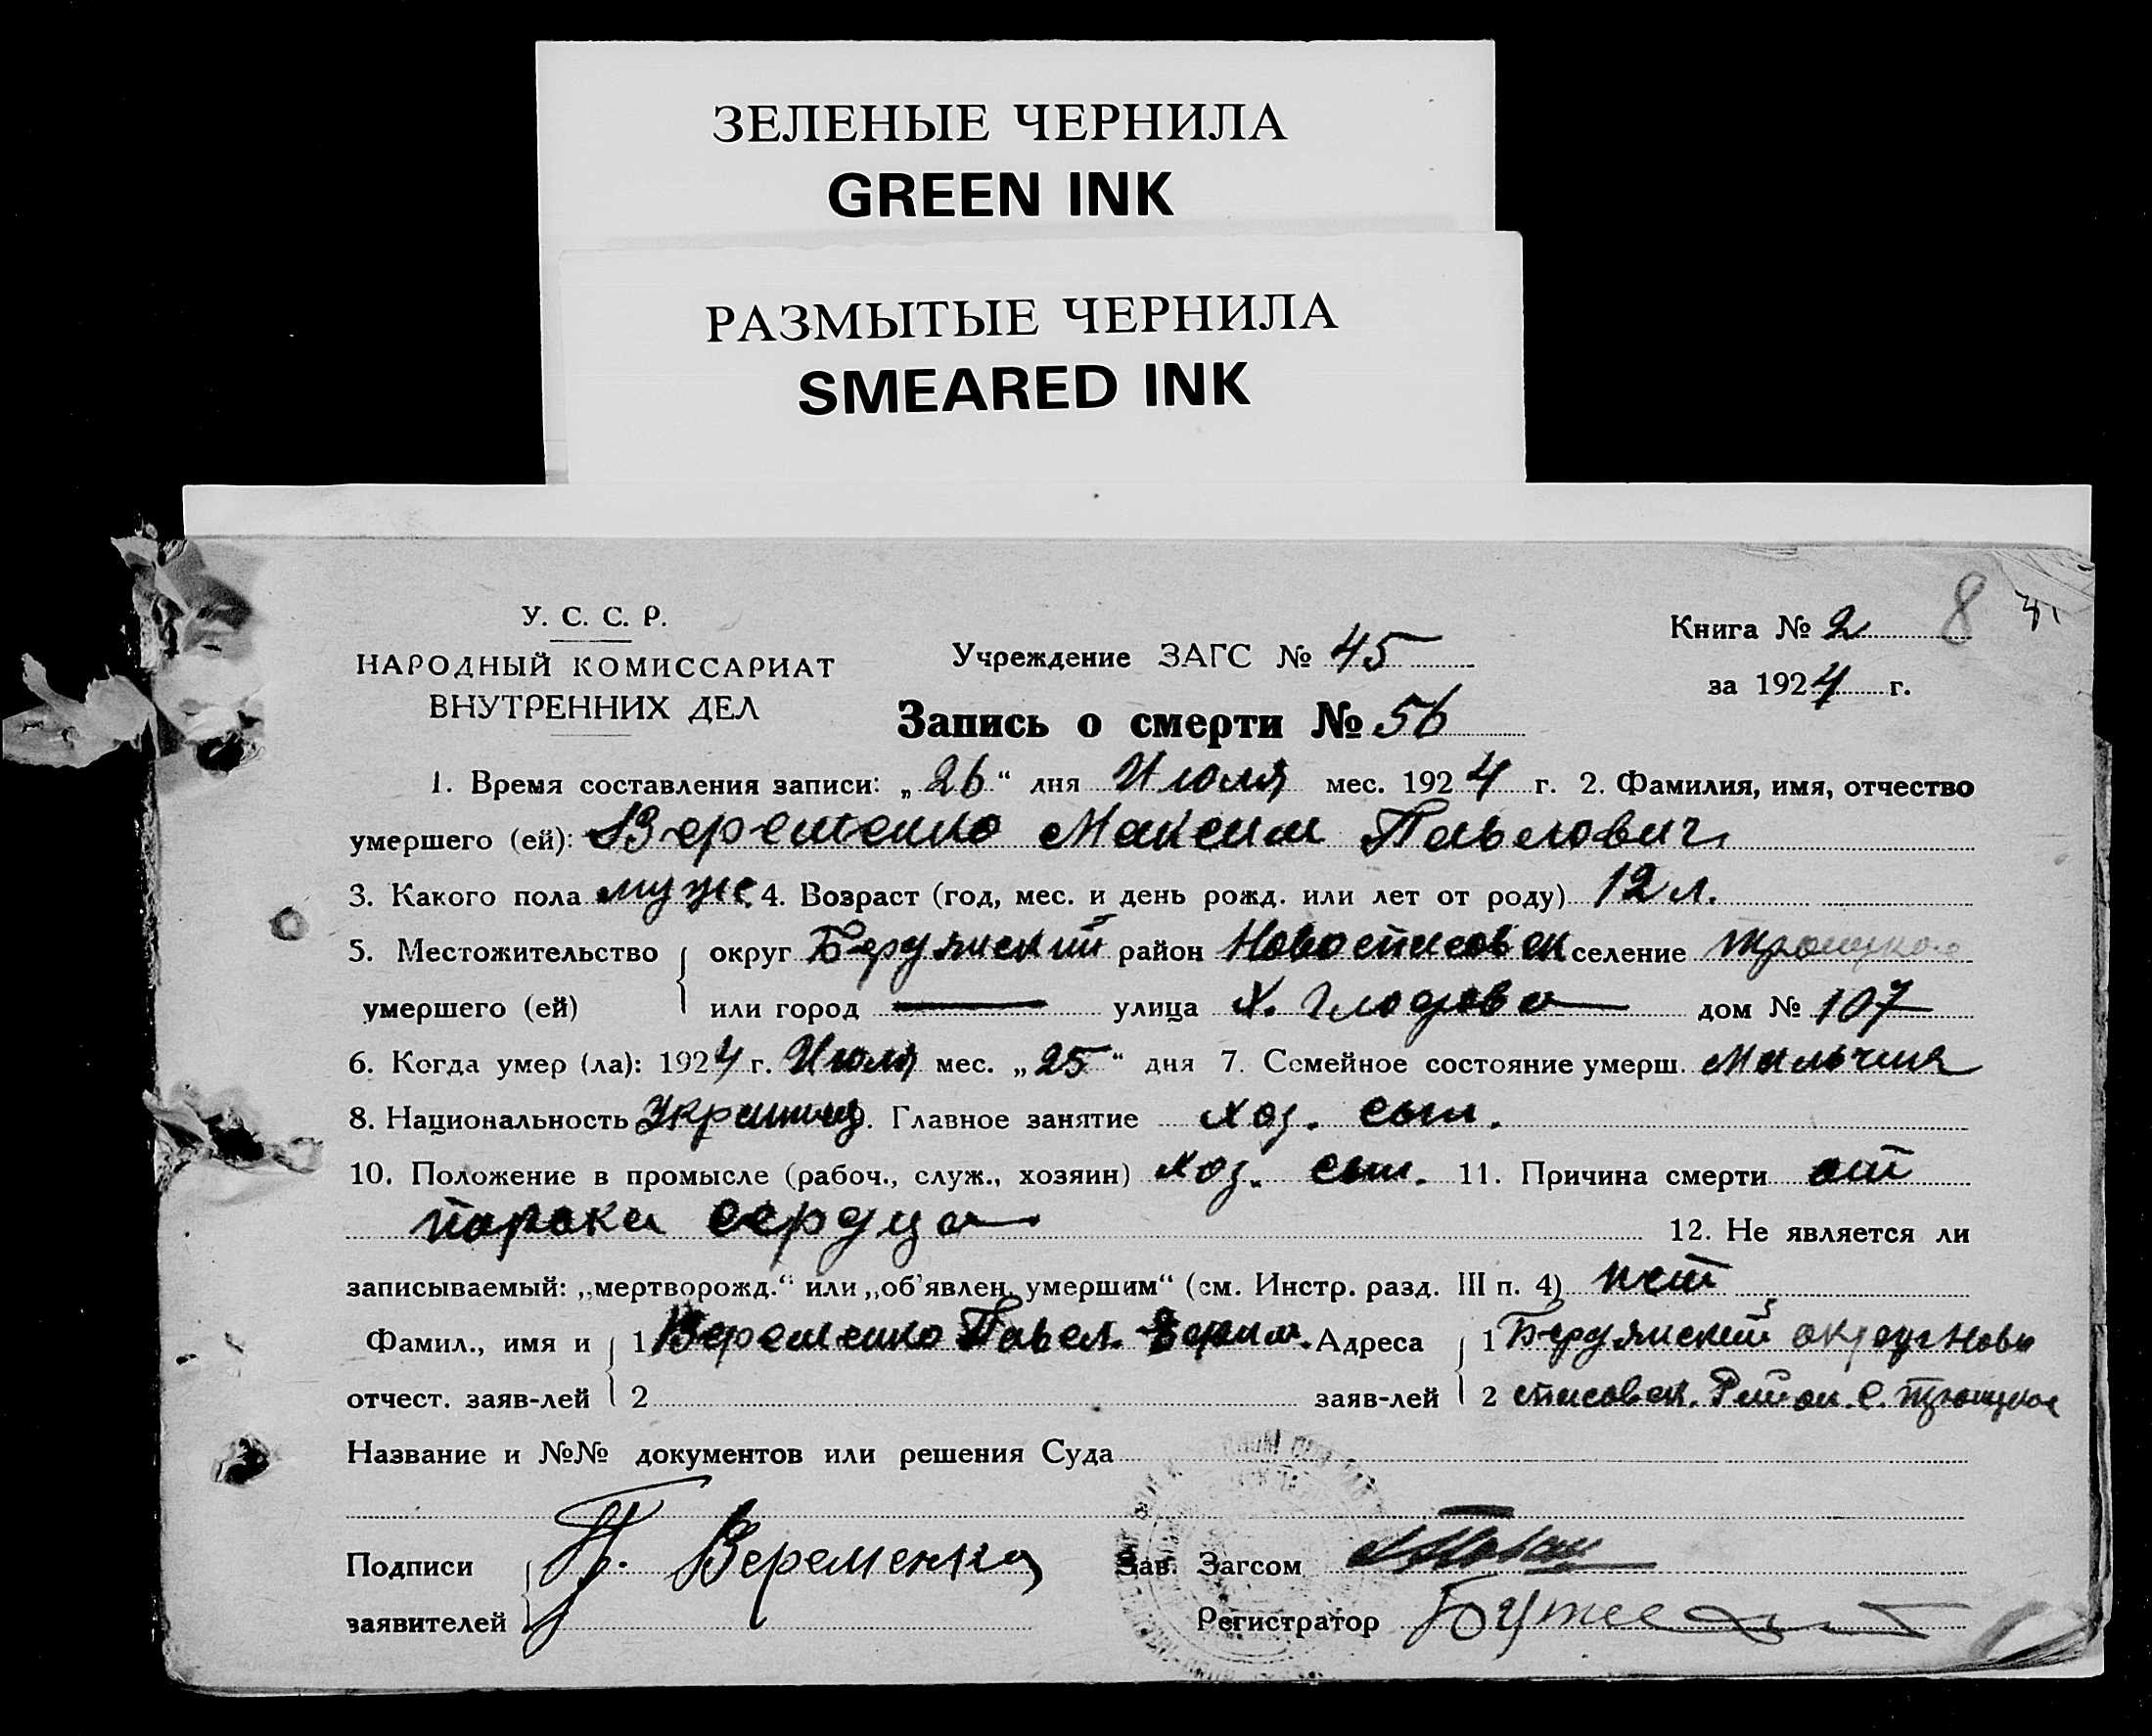 ЗЕЛЕНЫЕ ЧЕРНИЛА
GREEN INK
РАЗМЫТЫЕ ЧЕРНИЛА
SMEARED INK
У. С. С. Р.
НАРОДНЫЙ КОМИССАРИАТ
ВНУТРЕННИХ ДЕЛ
Учреждение ЗАГС № 45
Книга № 2 8
за 1924 г.
Запись о смерти № 56
1. Время составления записи: „26“ дня Июля мес. 1924 г. 2. Фамилия, имя, отчество
умершего (ей): Веременко Максим Павлович
3. Какого пола муж. 4. Возраст (год, мес. и день рожд. или лет от роду) 12 л.
5. Местожительство округ Бердянский район Новоспасовск селение Троицкое
умершего (ей) или город улица х. дом № 107
6. Когда умер (ла): 1924 г. Июля мес. „25“ дня 7. Семейное состояние умерш. Мальчик
8. Национальность Украинец. Главное занятие хоз. сын.
10. Положение в промысле (рабоч., служ., хозяин) хоз. сын. 11. Причина смерти от
порока сердца 12. Не является ли
записываемый: „мертворожд.“ или „об'явлен. умершим“ (см. Инстр. разд. III п. 4) нет
Фамил., имя и 1 Веременко Павел Адреса 1 Бердянский округ Ново
отчест. заяв-лей 2 заяв-лей 2 спасовск. Район. с. Троицкое
Название и №№ документов или решения Суда
Подписи П. Веременко Зав. Загсом
заявителей Регистратор